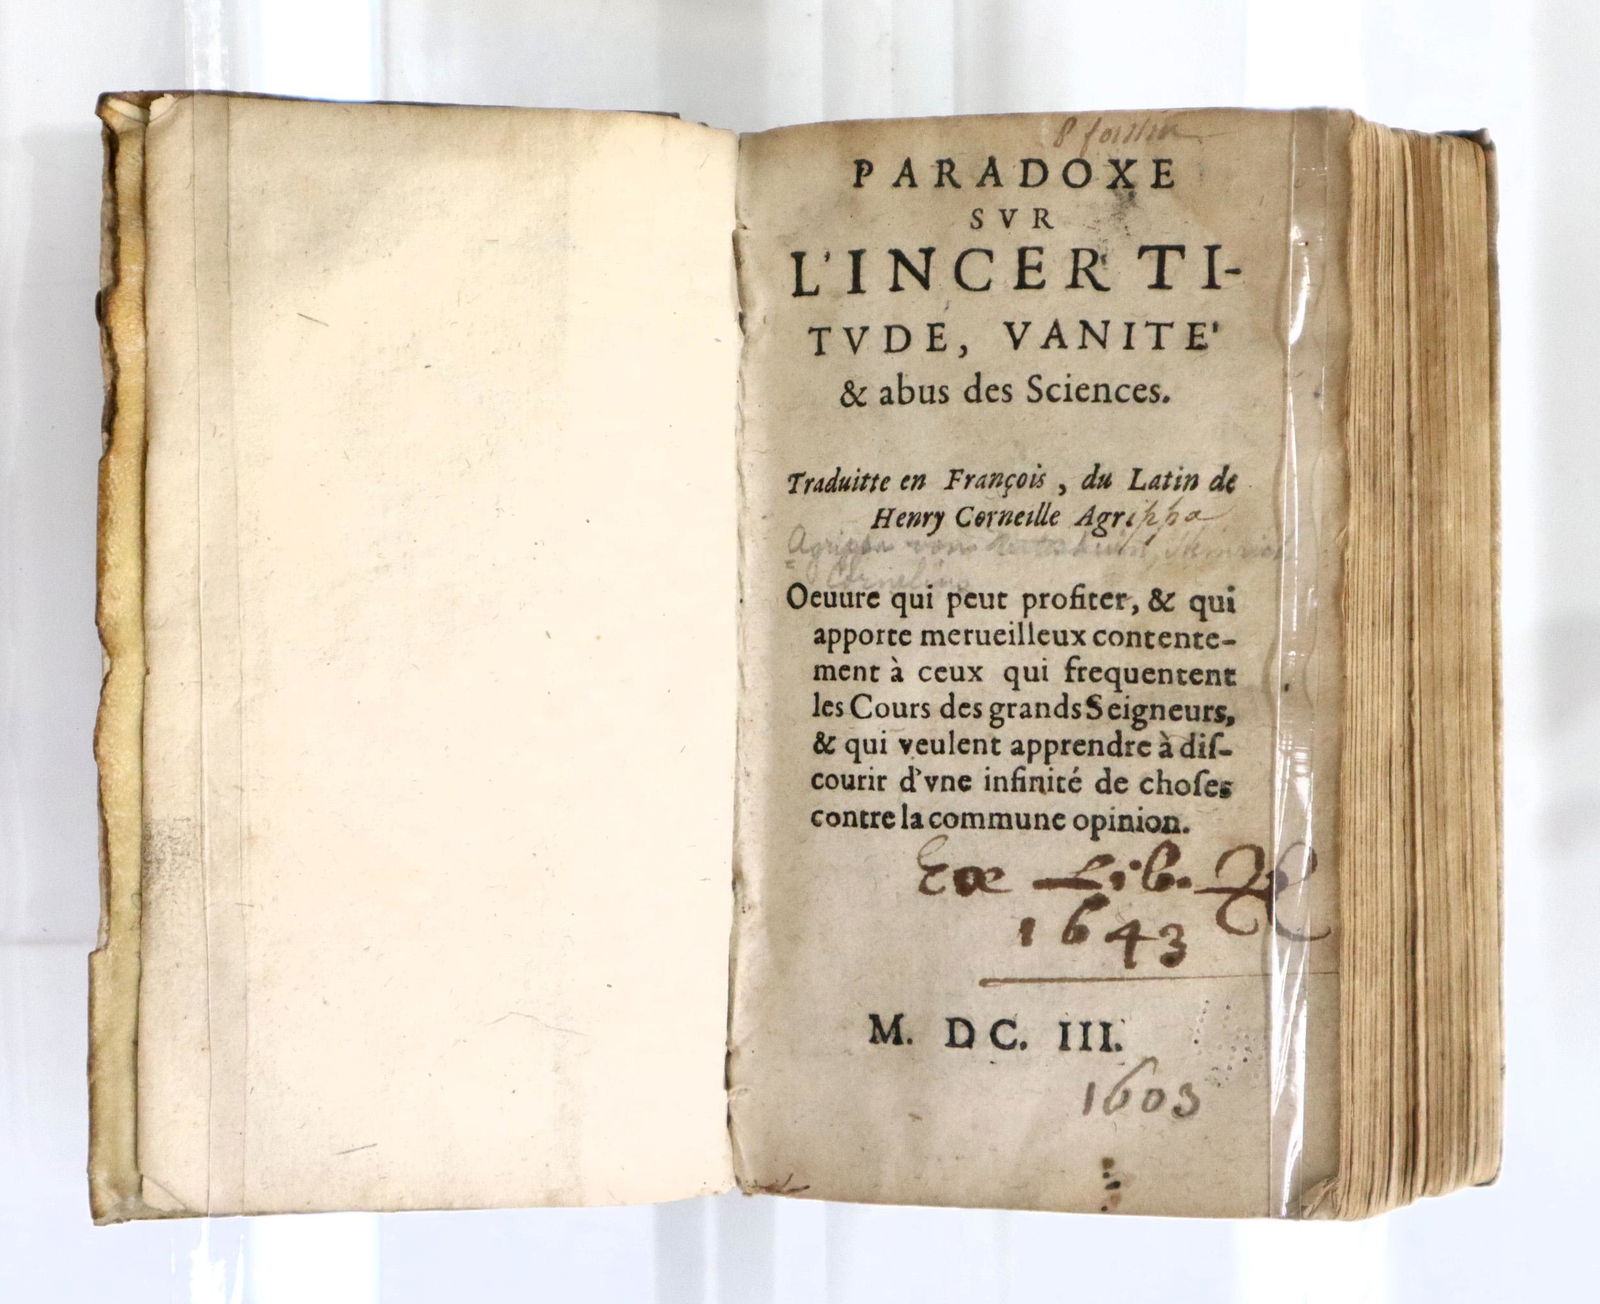 PARADOXE
SVR
L'INCERTI-
TVDE, VANITE'
& abus des Sciences.
Traduitte en François, du Latin de
Henry Corneille Agrippa
Agrippa von Nettesheim, Heinrich
Cornelius
Oeuure qui peut profiter, & qui
apporte merueilleux contente-
ment à ceux qui frequentent
les Cours des grands Seigneurs,
& qui veulent apprendre à diſ-
courir d'vne infinité de choſes
contre la commune opinion.
Ex Lib.
1643
M. DC. III.
1603